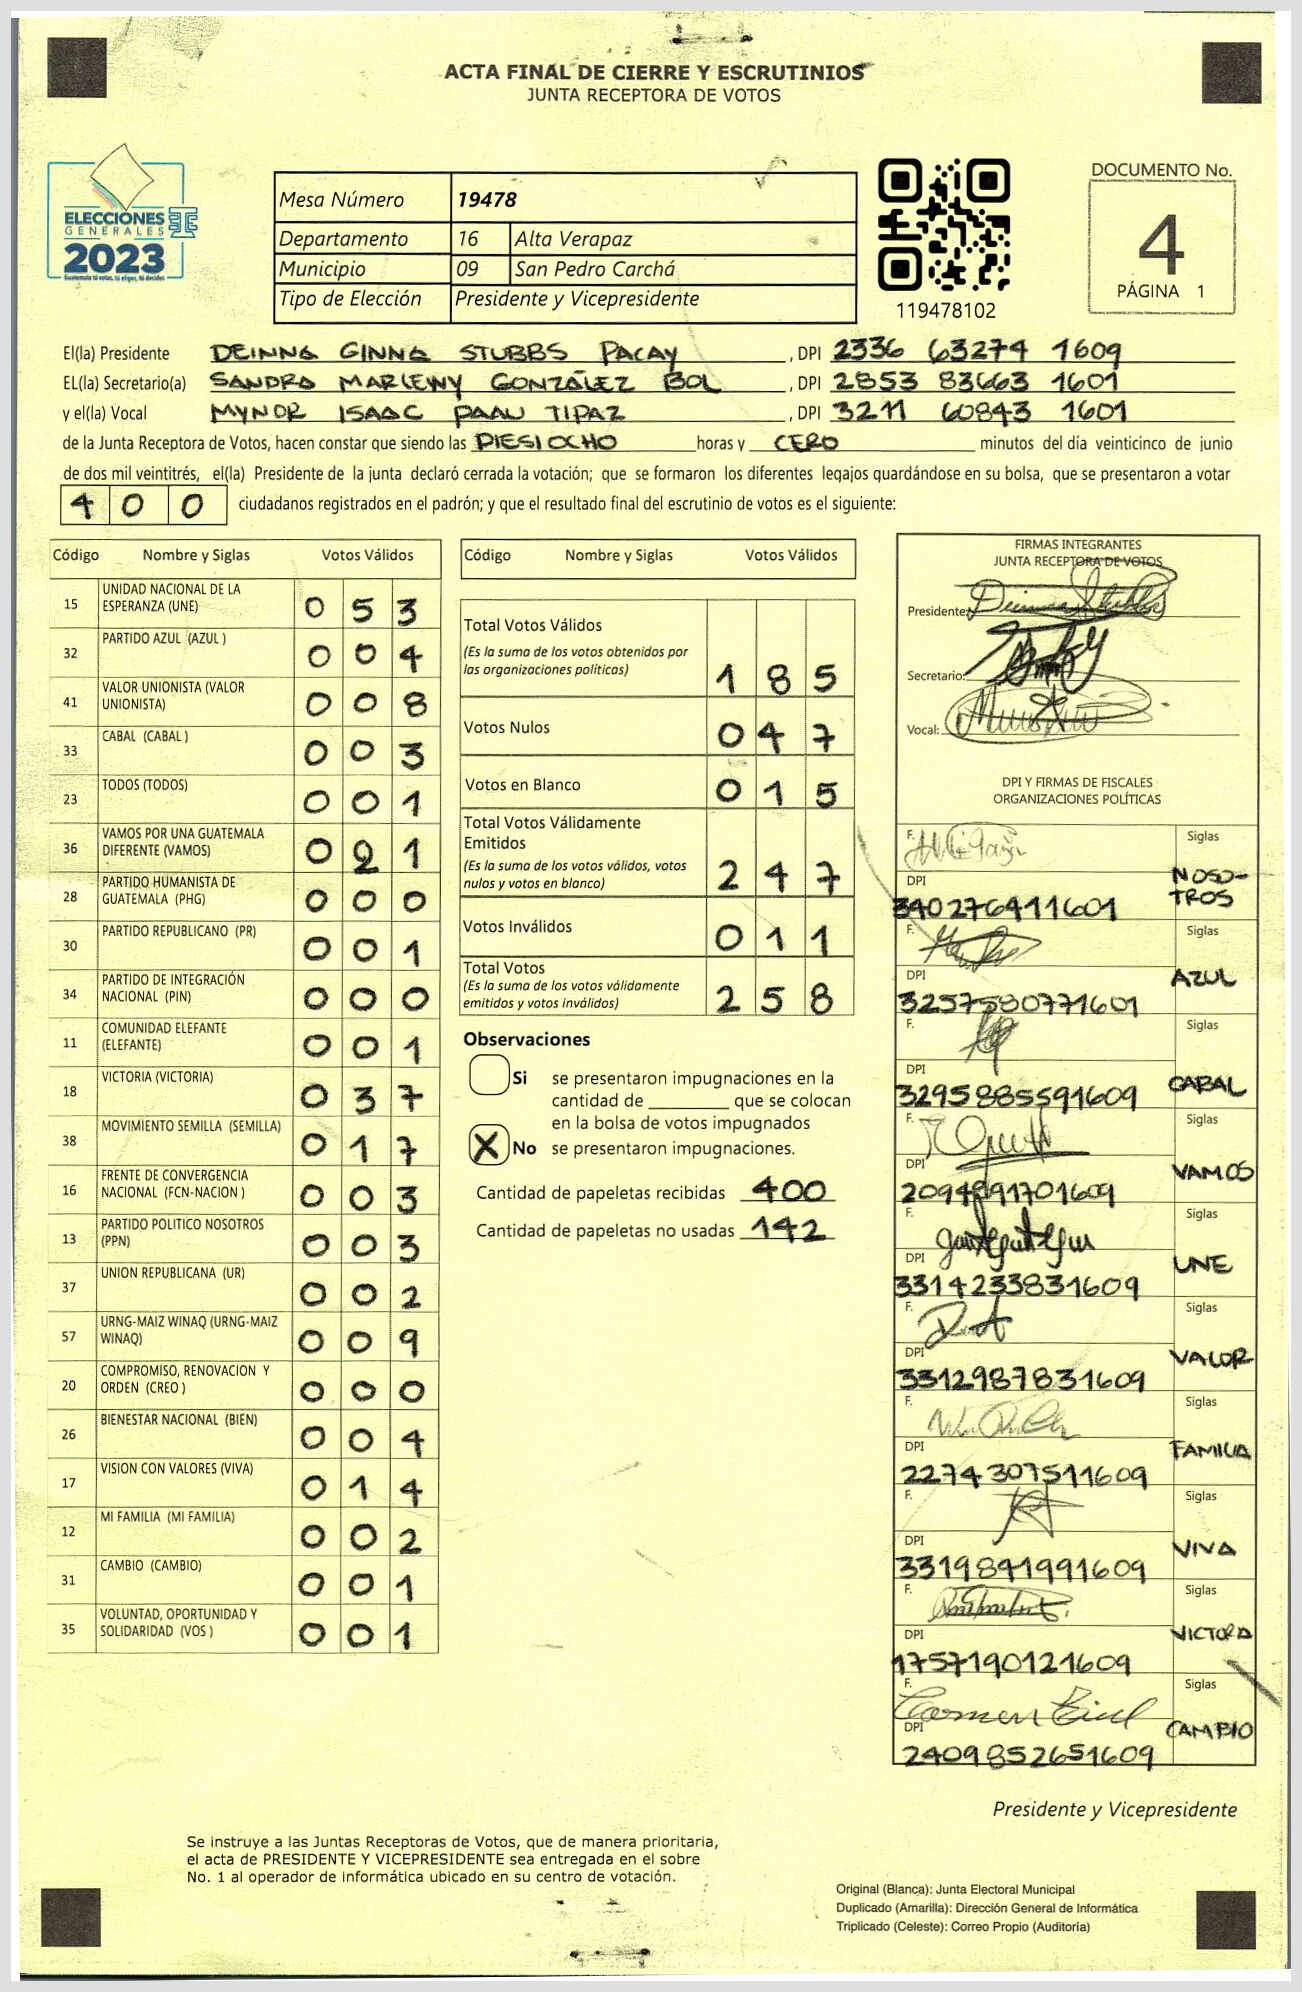 ACTA FINAL DE CIERRE Y ESCRUTINIOS
JUNTA RECEPTORA DE VOTOS
ELECCIONES
GENERALES
2023
Guatemala tú votas, tú eliges, tú decides
Mesa Número 19478
Departamento 16 Alta Verapaz
Municipio 09 San Pedro Carchá
Tipo de Elección Presidente y Vicepresidente
119478102
DOCUMENTO No.
4
PÁGINA 1
El(la) Presidente DEINNA GINNA STUBBS PACAY , DPI 2336 63274 1609
EL(la) Secretario(a) SANDRA MARLENY GONZÁLEZ BOL , DPI 2853 83663 1601
y el(la) Vocal MYNOR ISAAC PAAU TIPAZ , DPI 3211 60843 1601
de la Junta Receptora de Votos, hacen constar que siendo las DIESIOCHO horas y CERO minutos del día veinticinco de junio
de dos mil veintitrés, el(la) Presidente de la junta declaró cerrada la votación; que se formaron los diferentes legajos guardándose en su bolsa, que se presentaron a votar
400 ciudadanos registrados en el padrón; y que el resultado final del escrutinio de votos es el siguiente:
Código Nombre y Siglas Votos Válidos
15 UNIDAD NACIONAL DE LA
ESPERANZA (UNE) 0 5 3
32 PARTIDO AZUL (AZUL ) 0 0 4
41 VALOR UNIONISTA (VALOR
UNIONISTA) 0 0 8
33 CABAL (CABAL ) 0 0 3
23 TODOS (TODOS) 0 0 1
36 VAMOS POR UNA GUATEMALA
DIFERENTE (VAMOS) 0 2 1
28 PARTIDO HUMANISTA DE
GUATEMALA (PHG) 0 0 0
30 PARTIDO REPUBLICANO (PR) 0 0 1
34 PARTIDO DE INTEGRACIÓN
NACIONAL (PIN) 0 0 0
11 COMUNIDAD ELEFANTE
(ELEFANTE) 0 0 1
18 VICTORIA (VICTORIA) 0 3 7
38 MOVIMIENTO SEMILLA (SEMILLA) 0 1 7
16 FRENTE DE CONVERGENCIA
NACIONAL (FCN-NACION ) 0 0 3
13 PARTIDO POLITICO NOSOTROS
(PPN) 0 0 3
37 UNION REPUBLICANA (UR) 0 0 2
57 URNG-MAIZ WINAQ (URNG-MAIZ
WINAQ) 0 0 9
20 COMPROMISO, RENOVACION Y
ORDEN (CREO ) 0 0 0
26 BIENESTAR NACIONAL (BIEN) 0 0 4
17 VISION CON VALORES (VIVA) 0 1 4
12 MI FAMILIA (MI FAMILIA) 0 0 2
31 CAMBIO (CAMBIO) 0 0 1
35 VOLUNTAD, OPORTUNIDAD Y
SOLIDARIDAD (VOS ) 0 0 1
Código Nombre y Siglas Votos Válidos
Total Votos Válidos
(Es la suma de los votos obtenidos por
las organizaciones políticas) 1 8 5
Votos Nulos 0 4 7
Votos en Blanco 0 1 5
Total Votos Válidamente
Emitidos
(Es la suma de los votos válidos, votos
nulos y votos en blanco) 2 4 7
Votos Inválidos 0 1 1
Total Votos
(Es la suma de los votos válidamente
emitidos y votos inválidos) 2 5 8
Observaciones
Si se presentaron impugnaciones en la
cantidad de ________ que se colocan
en la bolsa de votos impugnados
X No se presentaron impugnaciones.
Cantidad de papeletas recibidas 400
Cantidad de papeletas no usadas 142
FIRMAS INTEGRANTES
JUNTA RECEPTORA DE VOTOS
Presidente:
Secretario:
Vocal:
DPI Y FIRMAS DE FISCALES
ORGANIZACIONES POLÍTICAS
F. Siglas
NOSO-
TROS
DPI
340276411601
F. Siglas
AZUL
DPI
3257580771601
F. Siglas
CABAL
DPI
3295885591609
F. Siglas
VAMOS
DPI
2094891701609
F. Siglas
UNE
DPI
3314233831609
F. Siglas
VALOR
DPI
3312987831609
F. Siglas
FAMILIA
DPI
2274307511609
F. Siglas
VIVA
DPI
3319841991609
F. Siglas
VICTORIA
DPI
1757190121609
F. Siglas
Carmen
CAMBIO
DPI
2409852651609
Presidente y Vicepresidente
Se instruye a las Juntas Receptoras de Votos, que de manera prioritaria,
el acta de PRESIDENTE Y VICEPRESIDENTE sea entregada en el sobre
No. 1 al operador de informática ubicado en su centro de votación.
Original (Blanca): Junta Electoral Municipal
Duplicado (Amarilla): Dirección General de Informática
Triplicado (Celeste): Correo Propio (Auditoría)